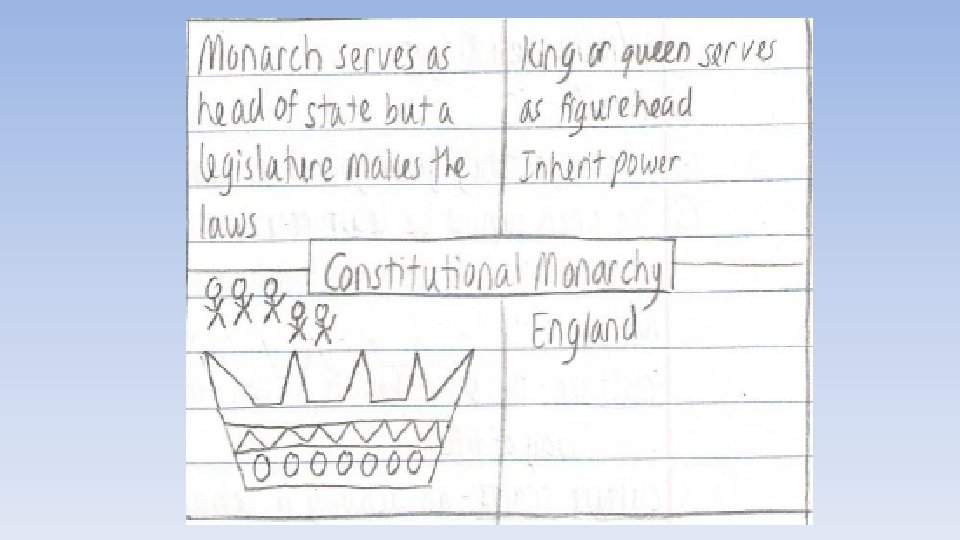 Monarch serves as
head of state but a
legislature makes the
laws
King or queen serves
as figurehead
Inherit power
Constitutional Monarchy
England